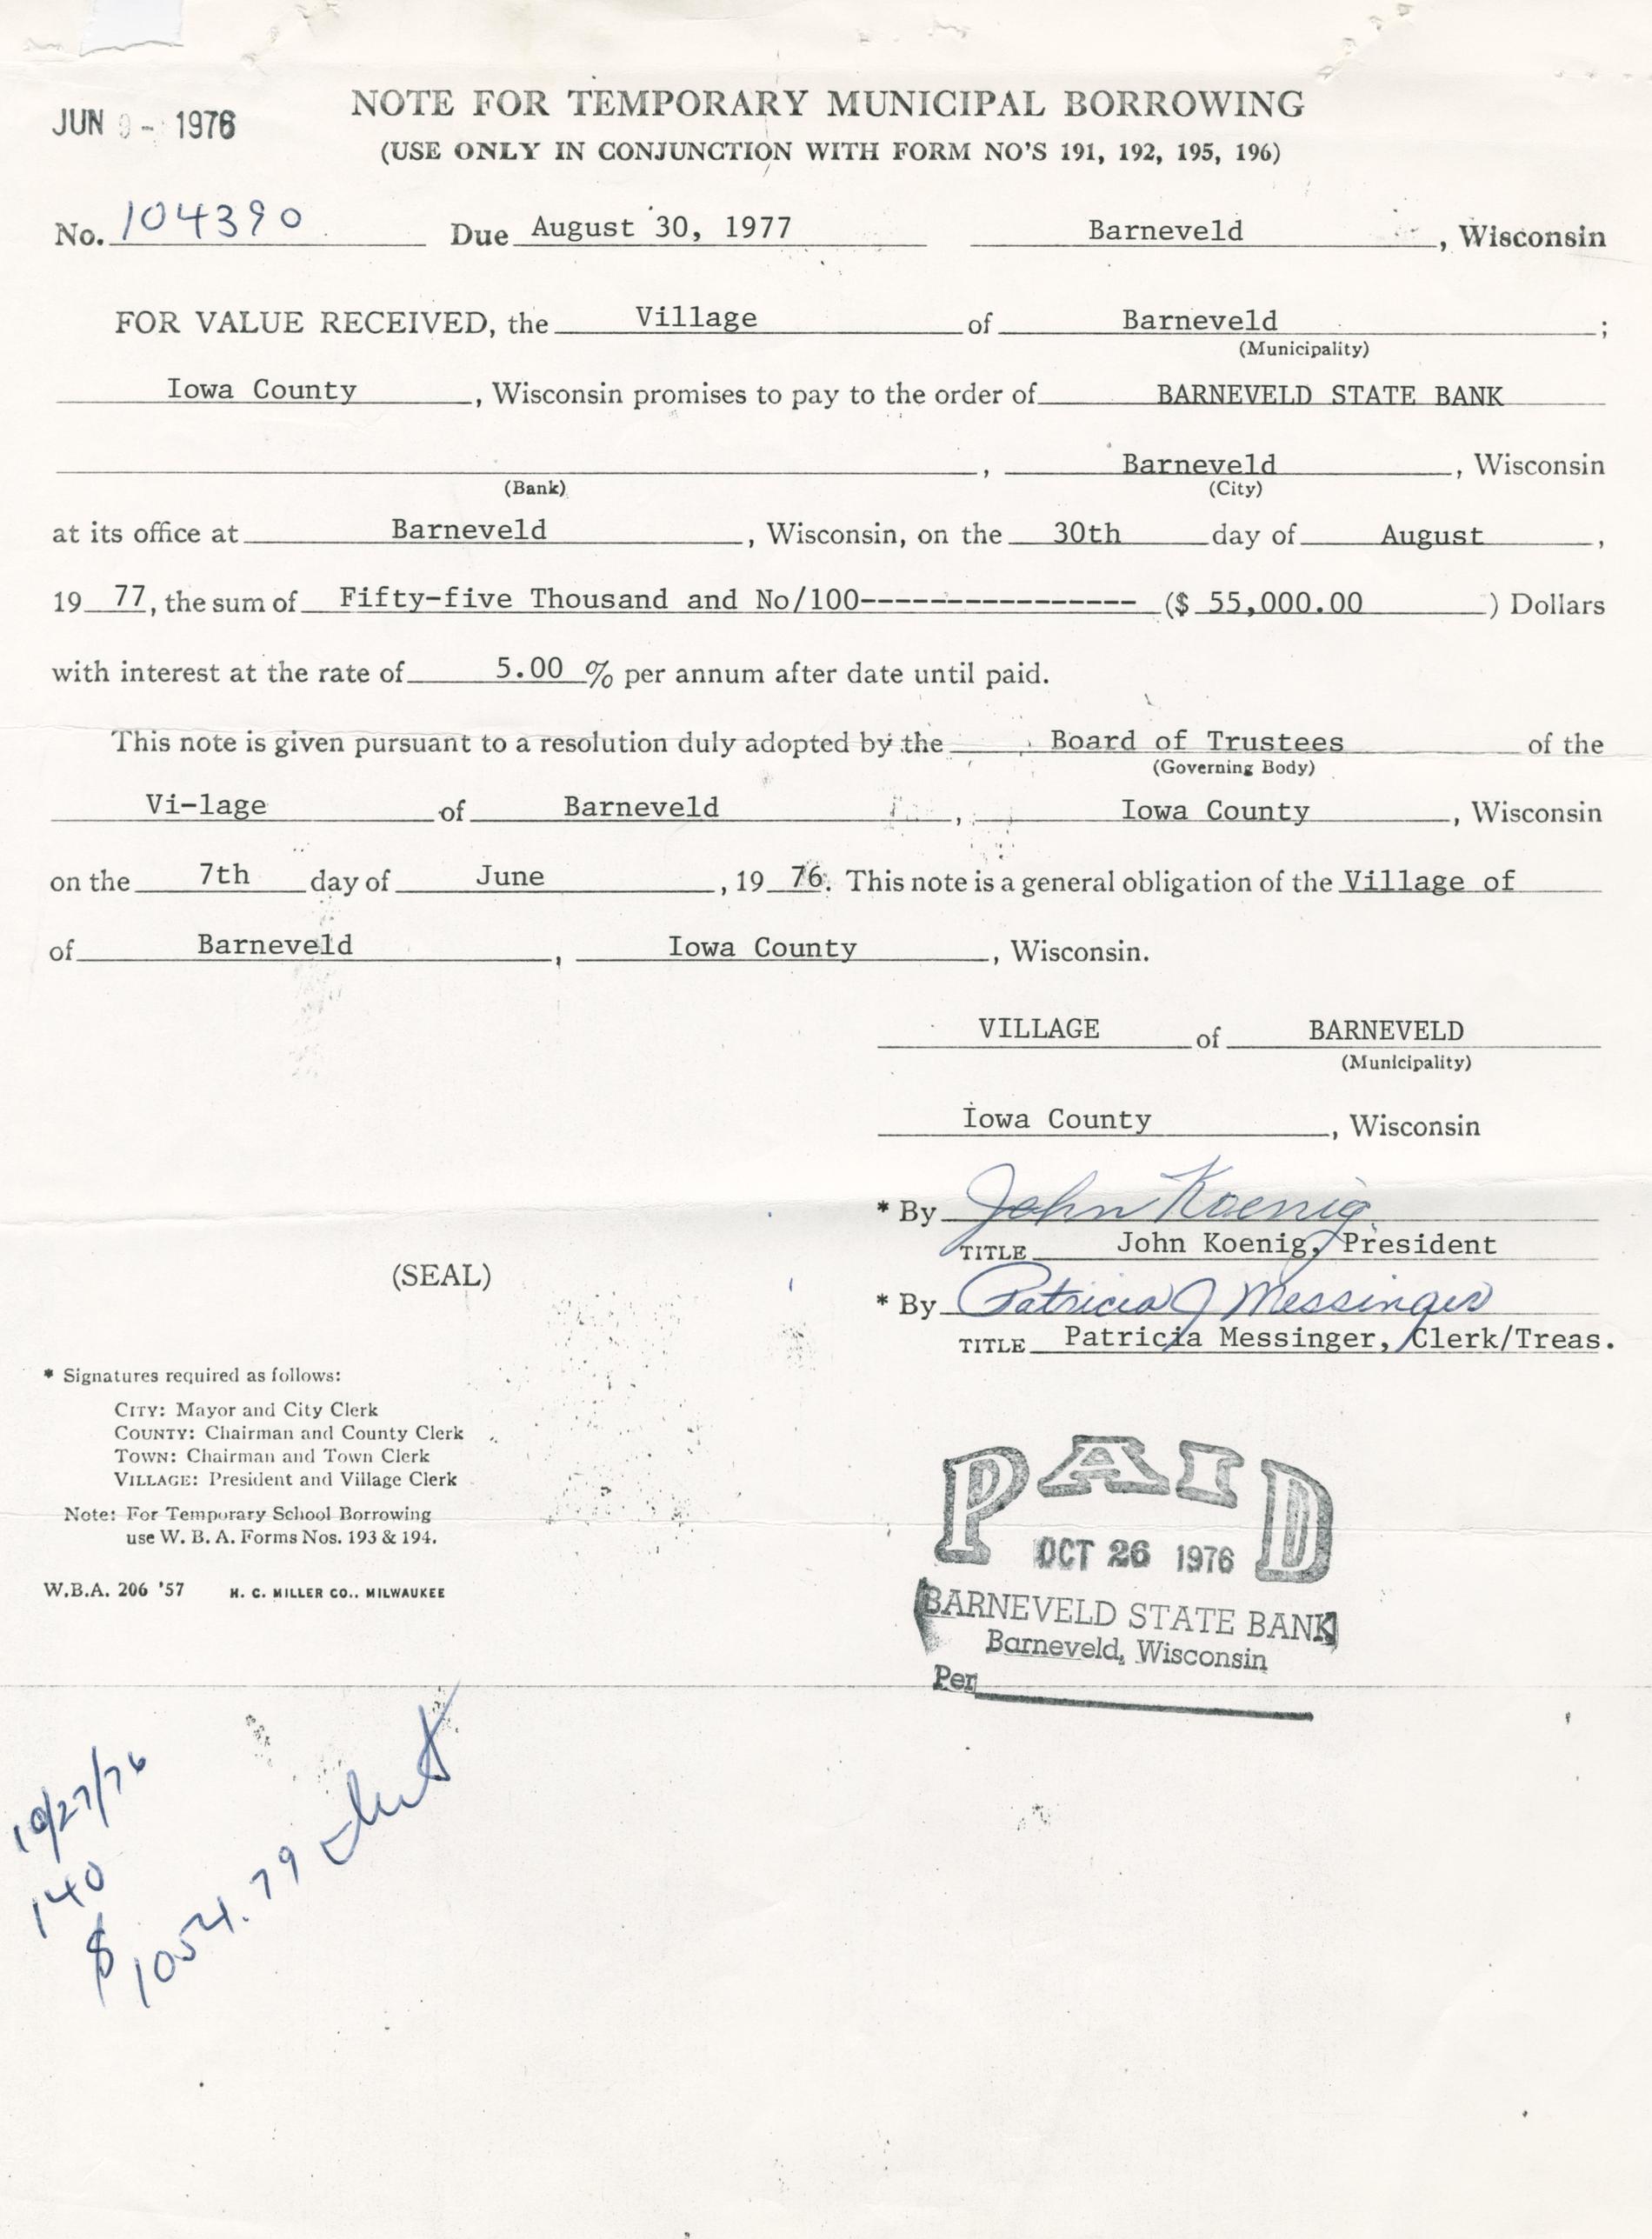 NOTE FOR TEMPORARY MUNICIPAL BORROWING
JUN 9 - 1976
(USE ONLY IN CONJUNCTION WITH FORM NO'S 191, 192, 195, 196)
No. 104390 Due August 30, 1977 Barneveld, Wisconsin
FOR VALUE RECEIVED, the Village of Barneveld ;
(Municipality)
Iowa County, Wisconsin promises to pay to the order of BARNEVELD STATE BANK
, Barneveld, Wisconsin
(Bank) (City)
at its office at Barneveld, Wisconsin, on the 30th day of August,
19 77, the sum of Fifty-five Thousand and No/100---------------- ($ 55,000.00 ) Dollars
with interest at the rate of 5.00 % per annum after date until paid.
This note is given pursuant to a resolution duly adopted by the Board of Trustees of the
(Governing Body)
Vi-lage of Barneveld, Iowa County, Wisconsin
on the 7th day of June, 19 76. This note is a general obligation of the Village of
of Barneveld, Iowa County, Wisconsin.
VILLAGE of BARNEVELD
(Municipality)
Iowa County, Wisconsin
* By John Koenig
TITLE John Koenig, President
(SEAL)
* By Patricia J Messinger
TITLE Patricia Messinger, Clerk/Treas.
* Signatures required as follows:
CITY: Mayor and City Clerk
COUNTY: Chairman and County Clerk
TOWN: Chairman and Town Clerk
VILLAGE: President and Village Clerk
Note: For Temporary School Borrowing
use W. B. A. Forms Nos. 193 & 194.
W.B.A. 206 '57 H. C. MILLER CO., MILWAUKEE
PAID
OCT 26 1976
BARNEVELD STATE BANK
Barneveld, Wisconsin
Per
10/27/76
140
$1054.79